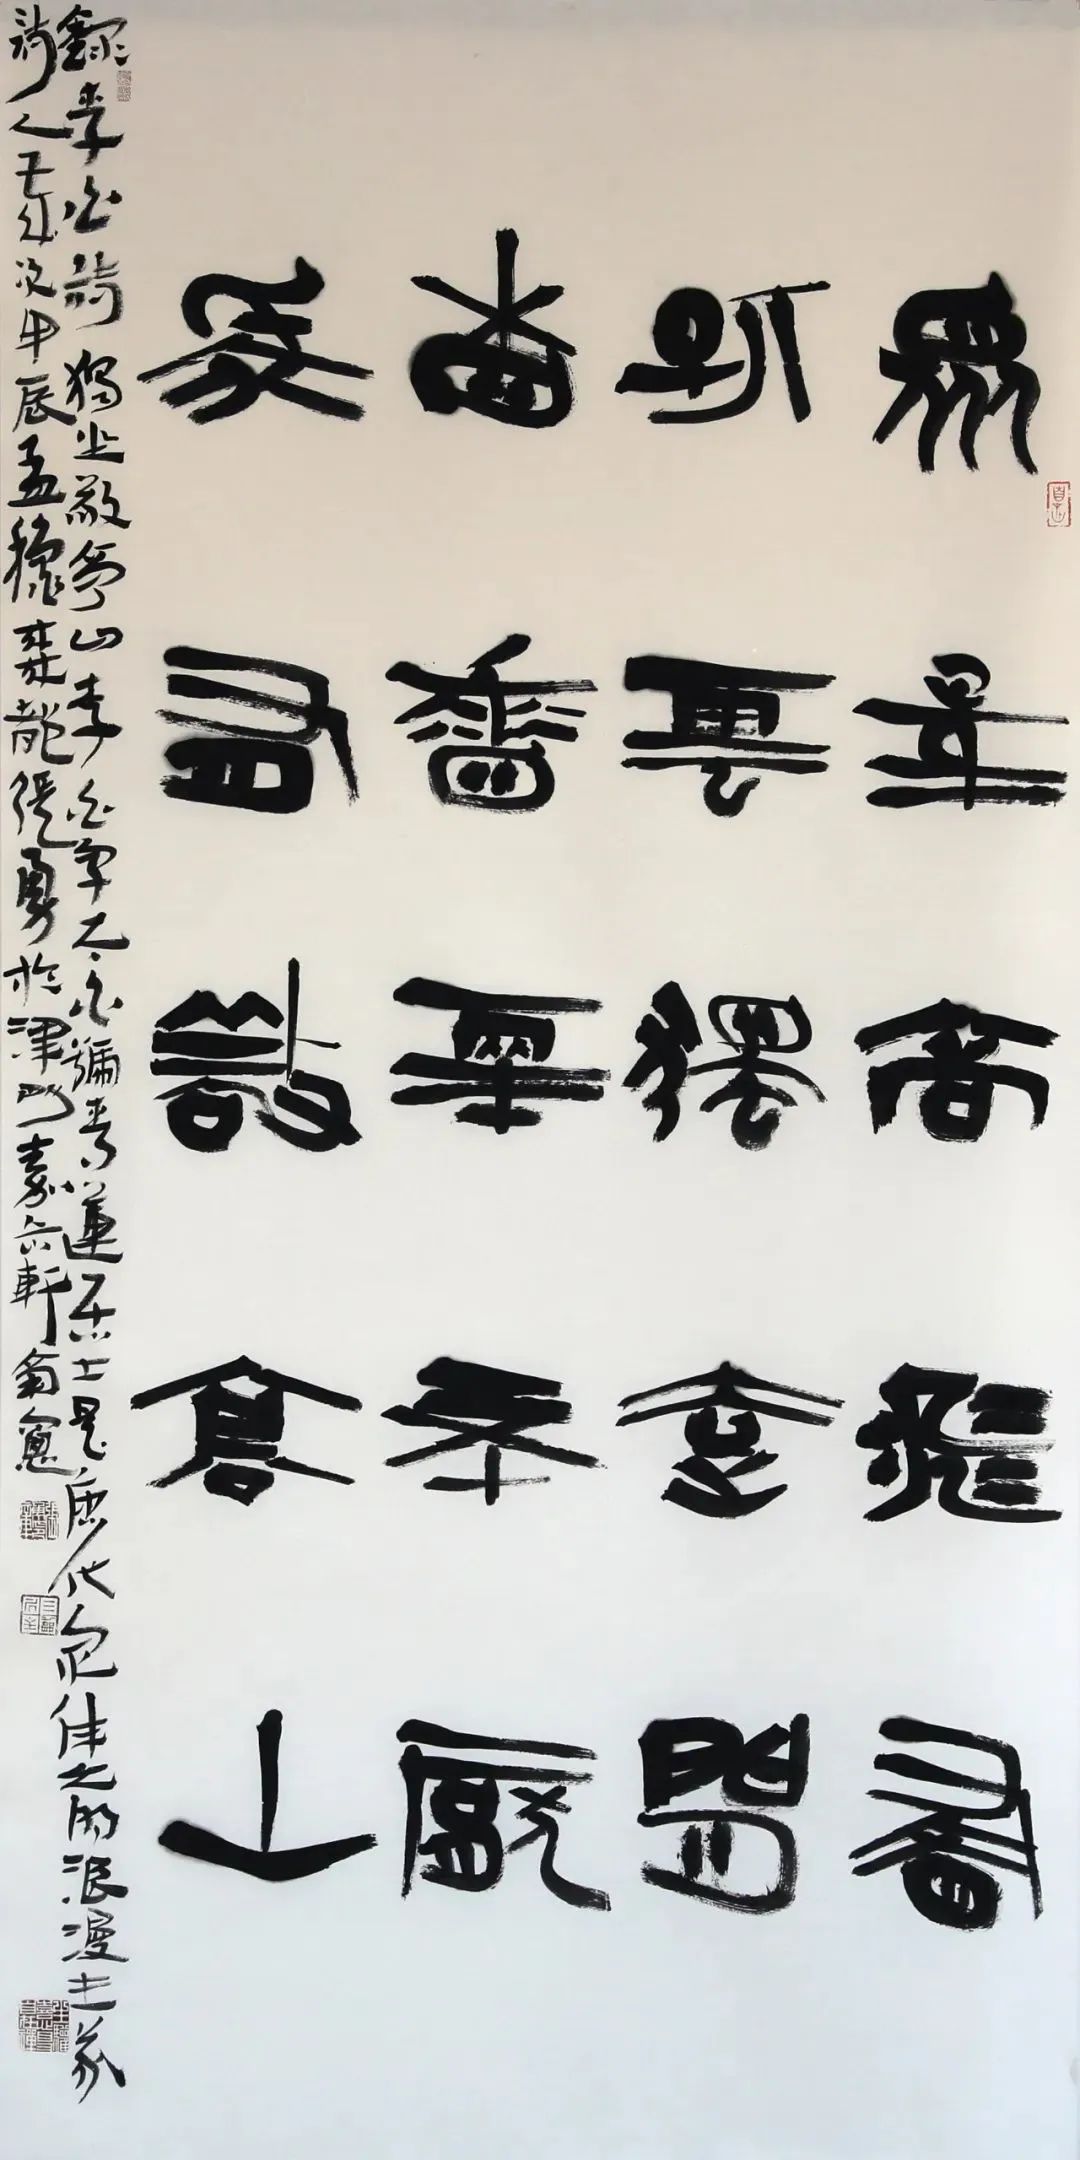 衆鳥高飛盡
孤雲獨去閒
相看兩不厭
只有敬亭山
錄李白詩獨坐敬亭山李白字太白號青蓮居士是唐代偉大的浪漫主義
詩人于歲次甲辰孟穐張勇於津門軒南窗